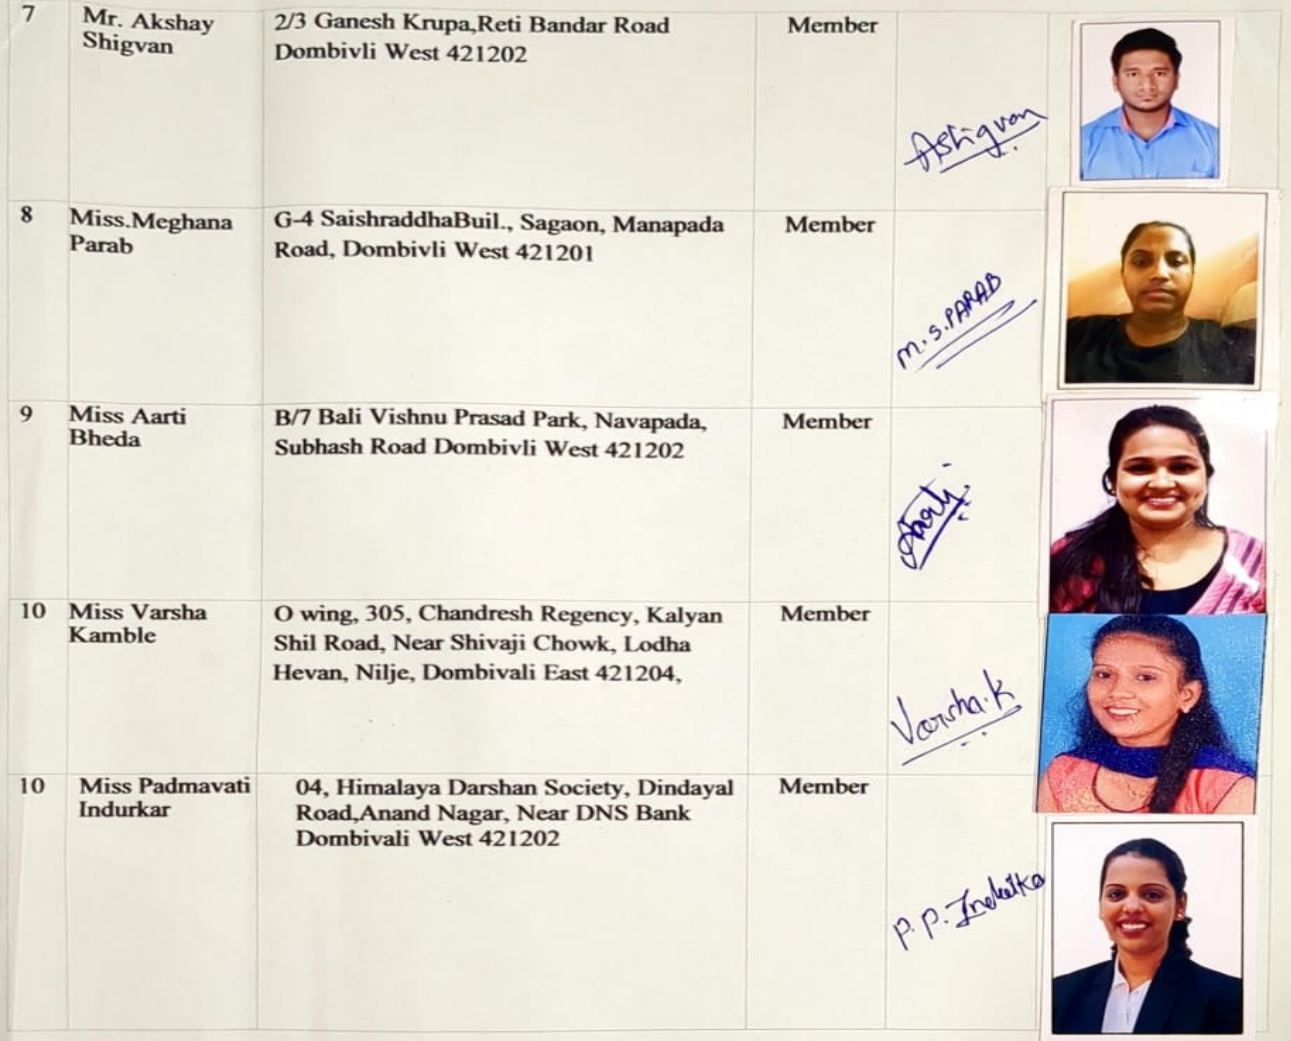 7
Mr. Akshay
Shigvan
2/3 Ganesh Krupa,Reti Bandar Road
Dombivli West 421202
Member
AShigvan
8
Miss.Meghana
Parab
G-4 SaishraddhaBuil., Sagaon, Manapada
Road, Dombivli West 421201
Member
M.S.PARAB
9
Miss Aarti
Bheda
B/7 Bali Vishnu Prasad Park, Navapada,
Subhash Road Dombivli West 421202
Member
Aarti
10
Miss Varsha
Kamble
O wing, 305, Chandresh Regency, Kalyan
Shil Road, Near Shivaji Chowk, Lodha
Hevan, Nilje, Dombivali East 421204,
Member
Varsha.K
10
Miss Padmavati
Indurkar
04, Himalaya Darshan Society, Dindayal
Road,Anand Nagar, Near DNS Bank
Dombivali West 421202
Member
P.P.